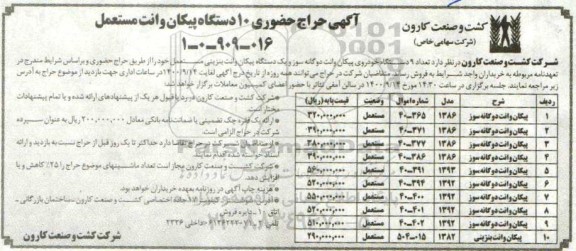 کشت و صنعت کارون
(شرکت سهامی خاص)
آگهی حراج حضوری ۱۰ دستگاه پیکان وانت مستعمل
۱-۰-۹۰۹-۰۱۶
شرکت کشت و صنعت کارون در نظر دارد تعداد ۹ دستگاه خودروی پیکان وانت دوگانه سوز و یک دستگاه پیکان وانت بنزینی مستعمل خود را از طریق حراج حضوری و براساس شرایط مندرج در
تعهدنامه مربوطه به خریداران واجد شرایط به فروش رساند. متقاضیان شرکت در حراج می‌توانند همه روزه از تاریخ درج آگهی لغایت ۱۴۰۰/۹/۱۳ در ساعات اداری جهت بازدید از موضوع حراج به آدرس
زیر مراجعه نمایند. جلسه برگزاری در ساعت ۱۴:۳۰ مورخ ۱۴۰۰/۹/۱۴ در سالن آمفی تئاتر با حضور اعضای کمیسیون معاملات برگزار خواهد شد.
ردیف شرح مدل شماره اموال وضعیت قیمت پایه (ریال)
۱ پیکان وانت دوگانه سوز ۱۳۸۶ ۴۰-۳۶۵ مستعمل ۳۲۰,۰۰۰,۰۰۰
۲ پیکان وانت دوگانه سوز ۱۳۸۶ ۴۰-۳۷۱ مستعمل ۳۹۰,۰۰۰,۰۰۰
۳ پیکان وانت دوگانه سوز ۱۳۸۶ ۴۰-۳۷۷ مستعمل ۳۸۰,۰۰۰,۰۰۰
۴ پیکان وانت دوگانه سوز ۱۳۸۶ ۴۰-۳۸۶ مستعمل ۳۹۰,۰۰۰,۰۰۰
۵ پیکان وانت دوگانه سوز ۱۳۹۳ ۴۰-۳۹۱ مستعمل ۵۶۰,۰۰۰,۰۰۰
۶ پیکان وانت دوگانه سوز ۱۳۹۲ ۴۰-۳۹۴ مستعمل ۵۲۰,۰۰۰,۰۰۰
۷ پیکان وانت دوگانه سوز ۱۳۹۲ ۴۰-۴۰۰ مستعمل ۵۵۰,۰۰۰,۰۰۰
۸ پیکان وانت دوگانه سوز ۱۳۹۲ ۴۰-۴۰۱ مستعمل ۵۲۰,۰۰۰,۰۰۰
۹ پیکان وانت دوگانه سوز ۱۳۹۲ ۴۰-۴۰۲ مستعمل ۵۱۰,۰۰۰,۰۰۰
۱۰ پیکان وانت بنزینی ۱۳۸۲ ۵۰۴-۰۱۵ مستعمل ۲۹۰,۰۰۰,۰۰۰
* شرکت کشت و صنعت کارون در رد یا قبول هر یک از پیشنهادهای ارائه شده و یا تمام پیشنهادات
مختار است.
* ارائه یک فقره چک تضمینی یا ضمانت‌نامه بانکی معادل ۲۰۰,۰۰۰,۰۰۰ ریال به عنوان سپرده
شرکت در حراج الزامی است.
حداکثر تا یک روز قبل از حراج نسبت به بازدید و ارائه
* شرکت کشت و صنعت کارون مجاز است تعداد ماشینهای موضوع حراج را ۲۵٪ کاهش و یا
افزایش دهد.
* هزینه چاپ آگهی در روزنامه بعهده خریداران خواهد بود.
اختصاصی کشت و صنعت کارون ساختمان بازرگانی -
داخلی ۲۳۲۶
شرکت کشت و صنعت کارون